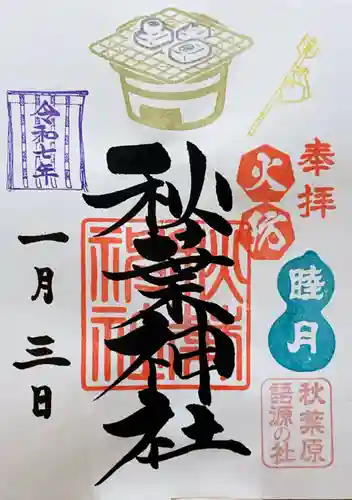 奉拝
火防
睦月
秋葉原
語源の社
秋葉神社
令和七年
一月三日